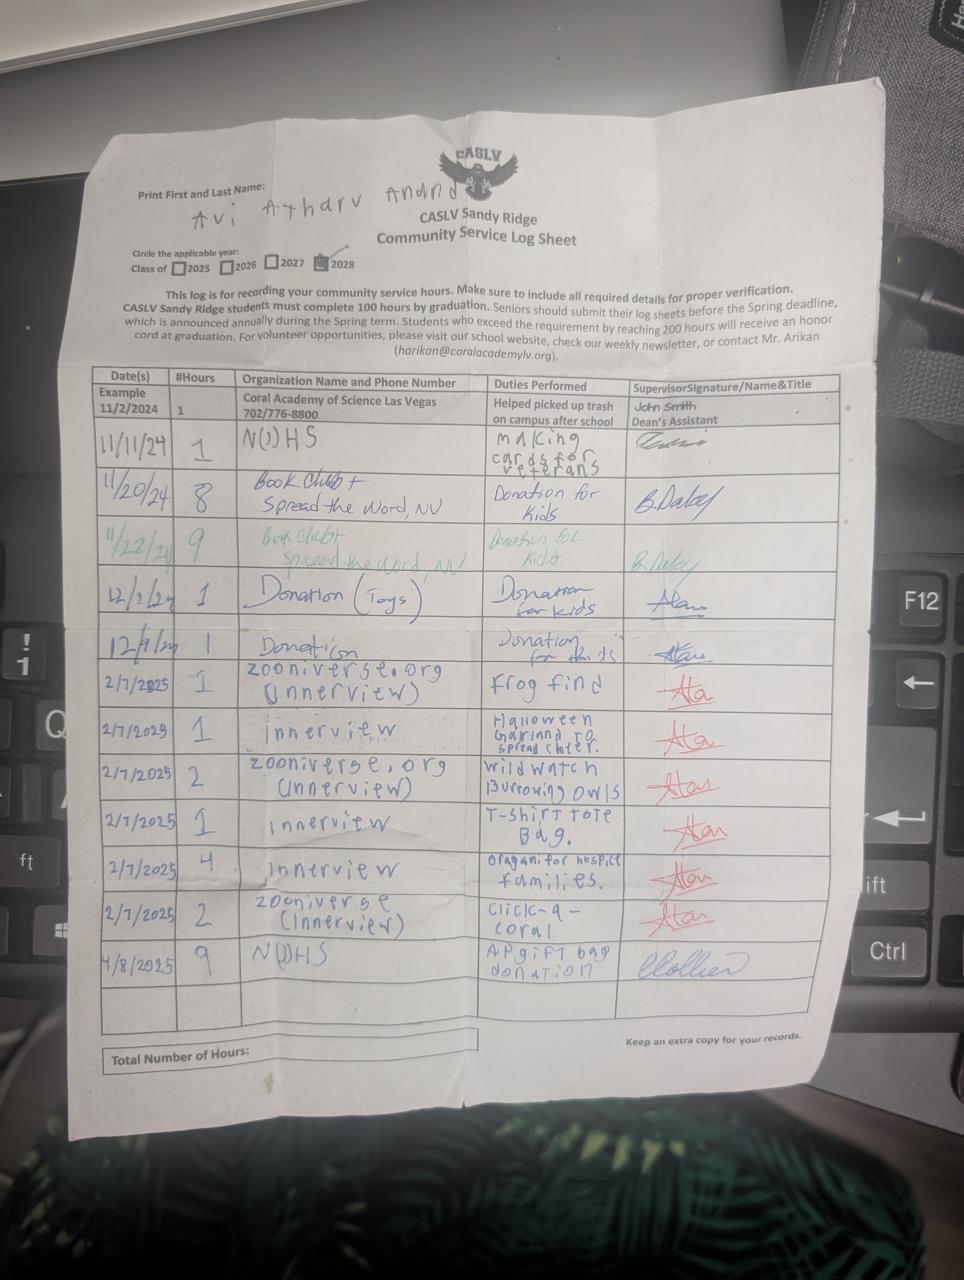 CASLV
Print First and Last Name:
Avi Atharv Anand
CASLV Sandy Ridge
Community Service Log Sheet
Circle the applicable year:
Class of 2025 2026 2027 2028
This log is for recording your community service hours. Make sure to include all required details for proper verification.
CASLV Sandy Ridge students must complete 100 hours by graduation. Seniors should submit their log sheets before the Spring deadline,
which is announced annually during the Spring term. Students who exceed the requirement by reaching 200 hours will receive an honor
cord at graduation. For volunteer opportunities, please visit our school website, check our weekly newsletter, or contact Mr. Arikan
(harikan@coralacademylv.org).
Date(s) #Hours Organization Name and Phone Number Duties Performed SupervisorSignature/Name&Title
Example
11/2/2024 1 Coral Academy of Science Las Vegas
702/776-8800
Helped picked up trash
on campus after school
John Smith
Dean's Assistant
11/11/24 1 N(J)HS
making
cards for
veterans
11/20/24 8 Book Club +
Spread the Word, NV
Donation for
Kids
B. Daley
11/22/24 9 Book Club +
Spread the Word, NV
Donation for
Kids
B. Daley
12/2/24 1 Donation (Toys)
Donation
for kids
12/9/24 1 Donation
Donation
for kids
2/7/2025 1 zooniverse.org
(innerview)
Frog find
2/7/2025 1 innerview
Halloween
Garland to
spread cheer.
2/7/2025 2 zooniverse.org
(innerview)
wildwatch
Burrowing owls
2/7/2025 1 innerview
T-shirt tote
Bag.
2/7/2025 4 innerview
Oragani for hospice
families.
2/7/2025 2 zooniverse
(innerview)
click-a-
coral
4/8/2025 9 N(J)HS
AP gift bag
donation
CCollier
Total Number of Hours:
Keep an extra copy for your records.
!
1
Q
F12
ft
ift
Ctrl